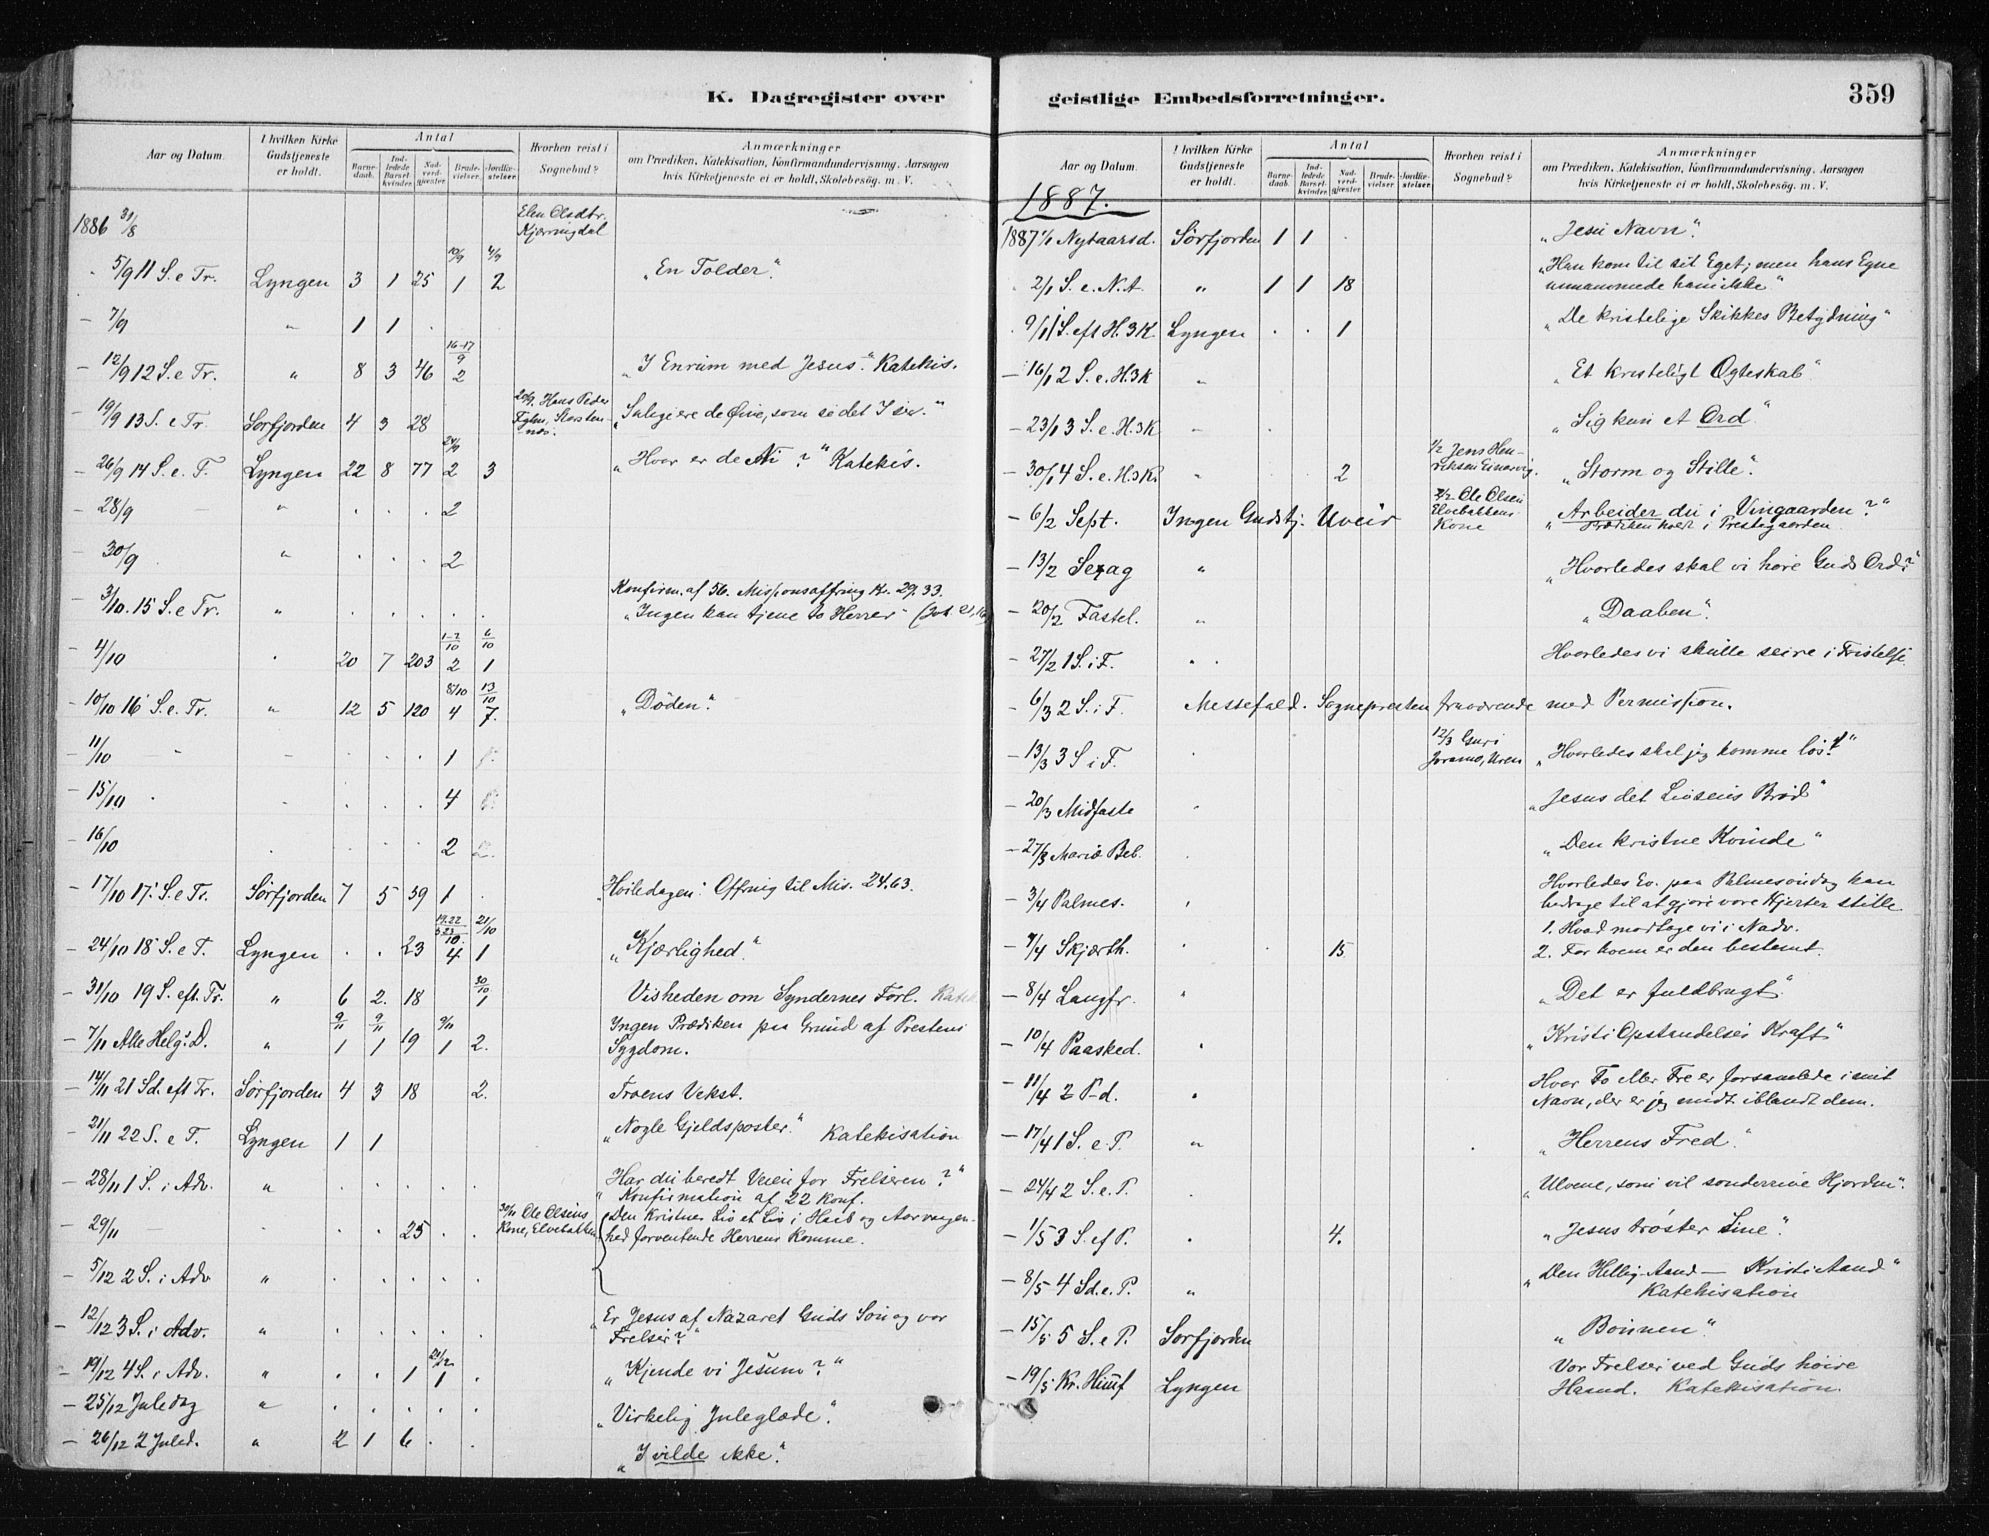 K. Dagregister over
Aar og Datum.
I hvilken Kirke Gudstjeneste er holdt.
Antal
Barnedaab.
Indledede Barselkvinder.
Nadverdgjæster
Brudevielser.
Jordfæstelser.
Hvorhen reist i Sognebud?
Anmærkninger
om Prædiken, Katekisation, Konfirmandundervisning, Aarsagen
hvis Kirketjeneste ei er holdt, Skolebesög. m. V.
1886 31/8 Elen Olsdtr. Kjerringdal
10/9 4/9
5/9 11 S. e Tr. Lyngen 3 1 25 1 2 „En Tolder“.
- 7/9 " 1 1 .
16-17/9
- 12/9 12 S. e Tr. " 8 3 46 2 „I Enrum med Jesus“. Katekis.
- 19/9 13 S. e Tr. Sørfjorden 4 3 28 20/9. Hans Peder Storstennæs. „Salige ere de Øine, som se det I ser.“
24/9
- 26/9 14 S. e. T. Lyngen 22 8 77 2 3 „Hvor er de Ni?“ Katekis.
- 28/9 - " . . . 2
- 30/9 " . . . 2
Konfirm. af 56. Missionsoffring Kr. 29.33.
- 3/10. 15 S. e Tr. " . . . . . „Ingen kan tjene to Herrer“
1-2/10 6/10
- 4/10 . 20 7 203 2 1
8/10 13/10
- 10/10 16 S. e. Tr. " 12 5 120 4 7. „Døden“.
- 11/10 - " - . . . 1
- 15/10 . - . . . 4
- 16/10 . . . . 2
- 17/10 17. S. e Tr. Sørfjorden 7 5 59 1 . „Hviledagen“. Offring til Mis. 24.63.
19.22 21/10
- 24/10 18 S. e T. Lyngen . . 23 4 1 „Kjærlighed“.
30/10
- 31/10 19 S. eft. Tr. " 6 2. 18 1 Visheden om Syndernes Forl.
9/11 9/11 9/11
- 7/11 Alle Helg: D. " 1 1 19 1 2. Ingen Prædiken paa Grund af Prestens
Sygdom.
- 14/11 21 Sd. eft Tr. Sørfjorden 4 3 18 2. Troens Vekst.
- 21/11 22 S. e T. Lyngen 1 1 „Nogle Gjeldsposter.“ Katekisation
- 28/11 1 S. i Adv. " . . . . . „Har du beredt Veien for Frelseren?“
Konfirmation af 22 Konf.
- 29/11 - . . 25 . . 30/11 Ole Olsens Kone, Elvebakken Den Kristnes Liv et Liv i Haab og Aarvaagen-
hed forventende Herrens Komme.
- 5/12 2 S. i Adv " . . . . .
- 12/12 3 S. i Adv. " . . . . . „Er Jesus af Nazaret Guds Søn og vor
Frelser?“
21/12
- 19/12 4 S. i Adv. " . . 1 1 . „Kjende vi Jesum?“
- 25/12 Juledag " . . . . . „Virkelig Juleglæde“.
- 26/12 2 Juled. " 2 1 6 . . „I vilde ikke“.
geistlige Embedsforretninger.
359
Aar og Datum.
I hvilken Kirke Gudstjeneste er holdt.
Antal
Barnedaab.
Indledede Barselkvinder.
Nadverdgjæster
Brudevielser.
Jordfæstelser.
Hvorhen reist i Sognebud?
Anmærkninger
om Prædiken, Katekisation, Konfirmandundervisning, Aarsagen
hvis Kirketjeneste ei er holdt, Skolebesög. m. V.
1887.
1887 1/1 Nytaarsd. Sørfjorden 1 1 . „Jesu Navn“.
. 2/1 S. e. N.A. " 1 1 18 „Han kom til sit Eget; men hans Egne
annammede ham ikke“
. 9/1 1 S. eft H. 3 K. Lyngen . . 1 „De kristelige Skikkes Betydning“
- 16/1 2 S. e. H. 3 K " „Et kristeligt Ægteskab“
- 23/1 3 S. e. H. 3 K " „Sig kun et Ord“.
- 30/1 4 S. e. H. 3 K. " 2 1/2 Jens Henriksen „Storm og Stille“.
- 6/2 Sept. Ingen Gudstj. Uveir 2/2 Ole Olsen Elvebakkens Kone „Arbeider du i Vingaarden?“
Prædiken holdt i Prestegaarden.
- 13/2 Sexag " „Hvorledes skal vi høre Guds Ord?“
- 20/2 Fastel. " „Daaben“.
- 27/2 1 S. i F. " . Hvorledes vi skulle seire i Fristelse
- 6/3 2 S. i F. Messefald. Sognepresten fraværende med Permission.
- 13/3 3 S i F. . 12/3 Guri „Hvorledes skal jeg komme løs?“
- 20/3 Midfaste . „Jesus det Livsens Brød“
- 27/3 Mariæ Beb. . „Den kristne Kvinde“
- 3/4 Palmes. , Hvorledes Ev. paa Palmesøndag kan
bidrage til at gjøre vore Hjerter stille
- 7/4 Skjærth. . 15 1. Hvad modtage vi i Nadv.
2. For hvem er den bestemt.
- 8/4 Langfr. " „Det er fuldbragt“
- 10/4 Paasked. . „Kristi Opstandelses Kraft“
- 11/4 2 P-d. . Hvor To eller Tre er forsamlede i mit
Navn, der er jeg midt iblandt dem.
- 17/4 1 S. e. P. " . „Herrens Fred“.
- 24/4 2 S. e. P. . „Ulvene, som vil sønderrive Hjorden“.
- 1/5 3 S. ef P. . 4. „Jesus trøster Sine“.
- 8/5 4 Sd. e. P. " „Den Hellig-Aand — Kristi Aand“
Katekisation
- 15/5 5 S. e P. Sørfjorden „Bønnen“.
- 19/5 Kr. Himf Lyngen Vor Frelser ved Guds høire
Haand. Katekisation.